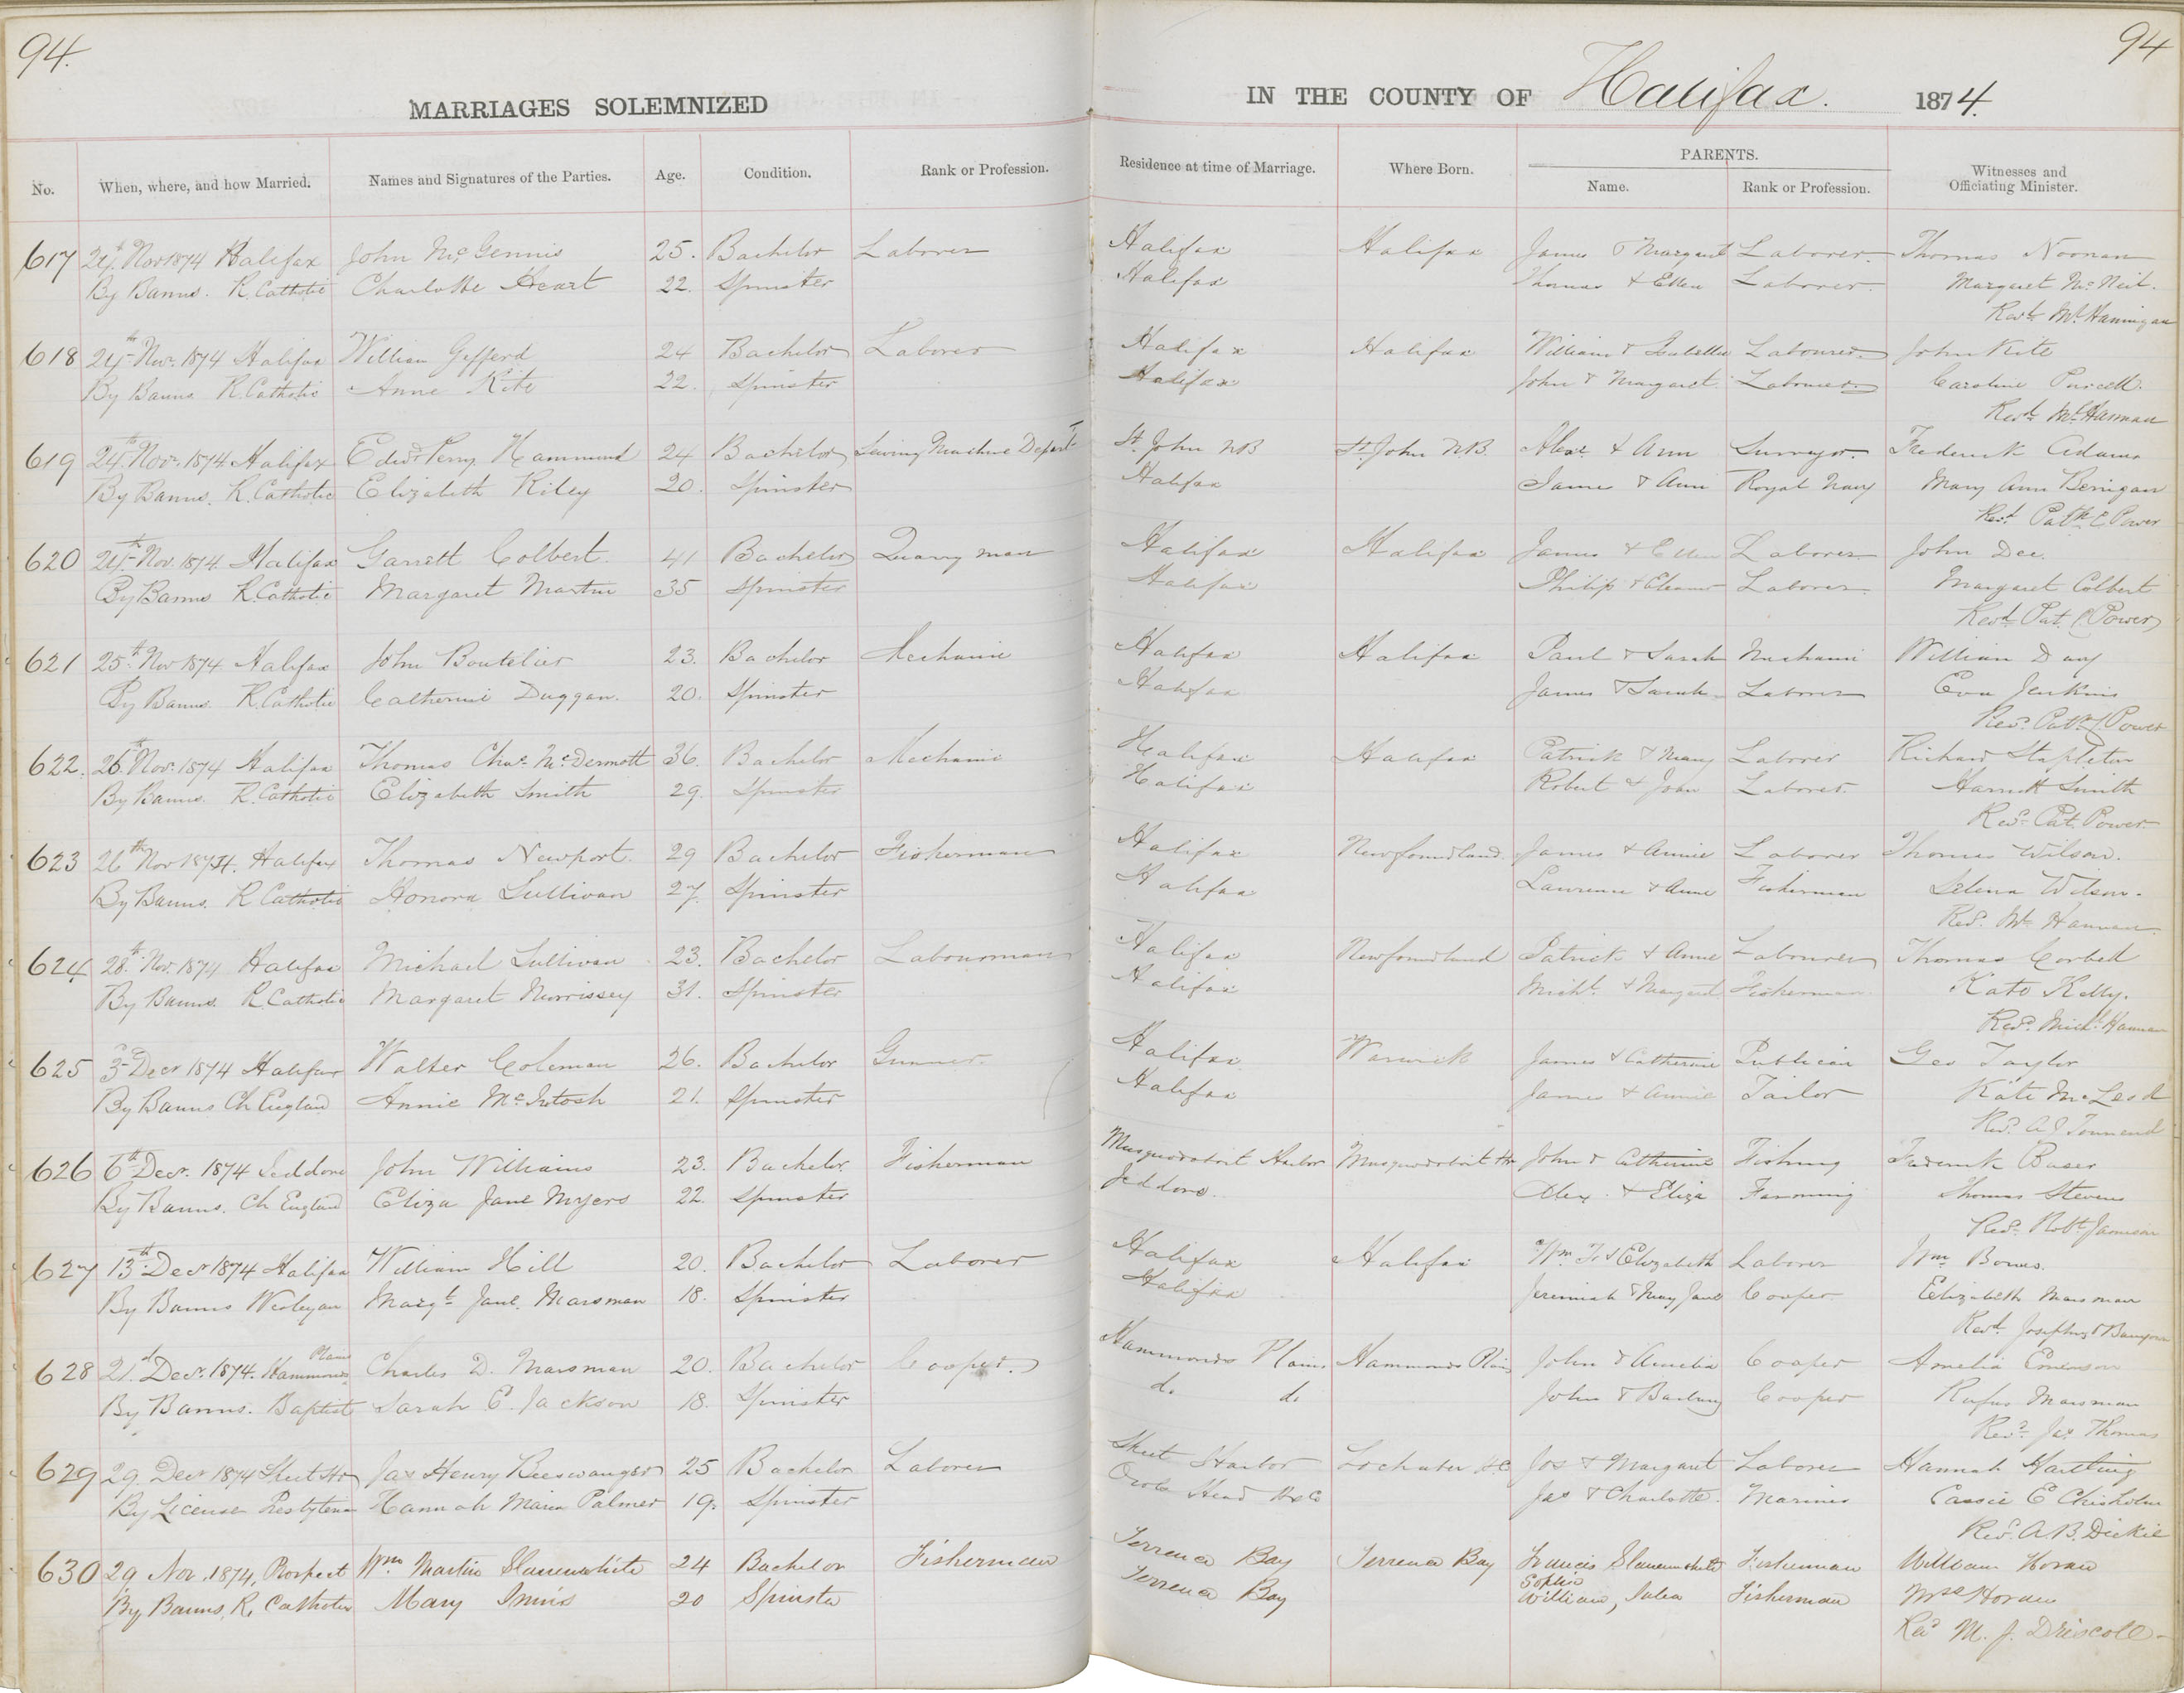 94.
94
MARRIAGES SOLEMNIZED
IN THE COUNTY OF Halifax. 1874.
No. When, where, and how Married. Names and Signatures of the Parties. Age. Condition. Rank or Profession. Residence at time of Marriage. Where Born. PARENTS. Name. Rank or Profession. Witnesses and Officiating Minister.
617 Nov 1874 Halifax John McGennis 25. Bachelor Laborer Halifax Halifax James & Margaret Laborer. Thomas Noonan
By Banns. R. Catholic Charlotte Heart 22. Spinster Halifax Thomas & Ellen Laborer. Margaret McNeil.
Revd. Ml. Hannigan
618 24th Nov. 1874 Halifax William Gifferd 24 Bachelor Laborer Halifax Halifax William & Isabella Labourer John Kite
By Banns R. Catholic Anne Kite 22. Spinster Halifax John & Margaret Labourer Caroline Purcell.
Revd. Ml. Hannan
619 24th Nov. 1874 Halifax Edwd Perry Hammond 24 Bachelor Sewing Machine Depart St. John NB St. John N.B. Alexr & Ann Surveyor. Frederick Adams
By Banns. R. Catholic Elizabeth Riley 20. Spinster Halifax James & Ann Royal Navy Mary Ann Berrigan
Revd. Patk. Power
620 24th Nov. 1874 Halifax Garrett Colbert. 41 Bachelor Quarry man Halifax Halifax James & Ellen Laborer John Dee.
By Banns R. Catholic Margaret Martin 35 Spinster Halifax Philip & Eleanor Laborer. Margaret Colbert
Revd. Pat. Power
621 25th Nov 1874 Halifax John Boutelier 23. Bachelor Mechanic Halifax Halifax Paul & Sarah Mechanic William Day
By Banns. R. Catholic Catherine Duggan. 20. Spinster Halifax James & Sarah Laborer Eva Jenkins
Revd. Patk. Power
622. 26th Nov. 1874 Halifax Thomas Chas. McDermott 36. Bachelor Mechanic Halifax Halifax Patrick & Mary Laborer Richard Stapleton
By Banns. R. Catholic Elizabeth Smith 29. Spinster Halifax Robert & Joan Laborer. Harriett Smith
Revd. Pat. Power.
623 26th Nov 1874. Halifax Thomas Newport. 29 Bachelor Fisherman Halifax Newfoundland. James & Annie Laborer Thomas Wilson.
By Banns. R Catholic Honora Sullivan 27. Spinster Halifax Lawrence & Anne Fisherman Selena Wilson.
Revd. Ml. Hannan.
624 28th Nov. 1874 Halifax Michael Sullivan 23. Bachelor Labourman Halifax Newfoundland Patrick & Anne Labourer Thomas Corbett
By Banns. R. Catholic Margaret Morrissey 31. Spinster Halifax Michl. & Margaret Fisherman Kate Kelly.
Revd. Michl. Hannan
625 3d Decr 1874 Halifax Walter Coleman 26. Bachelor Gunner. Halifax Warwick James & Catherine Publican Geo Taylor
By Banns Ch England Annie McIntosh 21. Spinster Halifax James & Annie Tailor Kate McLeod
Revd. A J Townend
626 6th Decr. 1874 Jeddore John Williams 23. Bachelor. Fisherman Musquodoboit Harbor Musquodoboit Hr John & Catherine Fishing Frederick Baser
By Banns. Ch England Eliza Jane Myers 22. Spinster Jeddore. Alex. & Eliza Farming Thomas Stevens
Revd. Robt Jamison
627 13th Decr 1874 Halifax William Hill 20. Bachelor Laborer Halifax Halifax Wm. & Elizabeth Laborer Wm. Bowes.
By Banns Wesleyan Margt. Jane. Marsman 18. Spinster Halifax Jeremiah & Mary Jane Cooper Elizabeth Marsman
Revd.
628 21st Decr. 1874. Hammonds Plains Charles D. Marsman 20. Bachelor Cooper. Hammonds Plains Hammonds Plains John & Amelia Cooper Amelia Emerson
By Banns. Baptist Sarah E. Jackson 18. Spinster do do John & Cooper Rufus Marsman
Revd. Jas Thomas
629 29. Decr 1874 Sheet Hr Jas Henry Beeswanger 25 Bachelor Laborer Sheet Harbor Lochaber Jos & Margaret Laborer Hannah Hartling
By License Presbyterian Hannah Maria Palmer 19. Spinster Owls Head Hx Co Jas & Charlotte. Mariner Cassie E Chisholm
Revd. A.B. Dickie
630 29 Nov. 1874, Prospect Wm Martin Slaunwhite 24 Bachelor Fisherman Terrence Bay Terrence Bay Francis Slaunwhite Sophia Fisherman William Horan
By Banns, R. Catholic Mary Innis 20 Spinster Terrence Bay William, Julia Fisherman Mrs Horan
Rev M. J. Driscoll